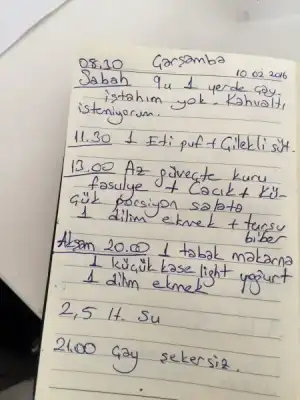 08.30 Çarşamba
10.02.2016
Sabah 9u 1 yerde çay.
iştahım yok. Kahvaltı
istemiyorum.
11.30 1 Eti puf + Çilekli süt.
13.00 Az güveçte kuru
fasulye + Cacık + Kü-
çük porsiyon salata
1 dilim ekmek + turşu
biber
Akşam 20.00 1 tabak makarna
1 küçük kase light yoğurt
1 dilim ekmek
2,5 lt. Su
21.00 çay şekersiz.